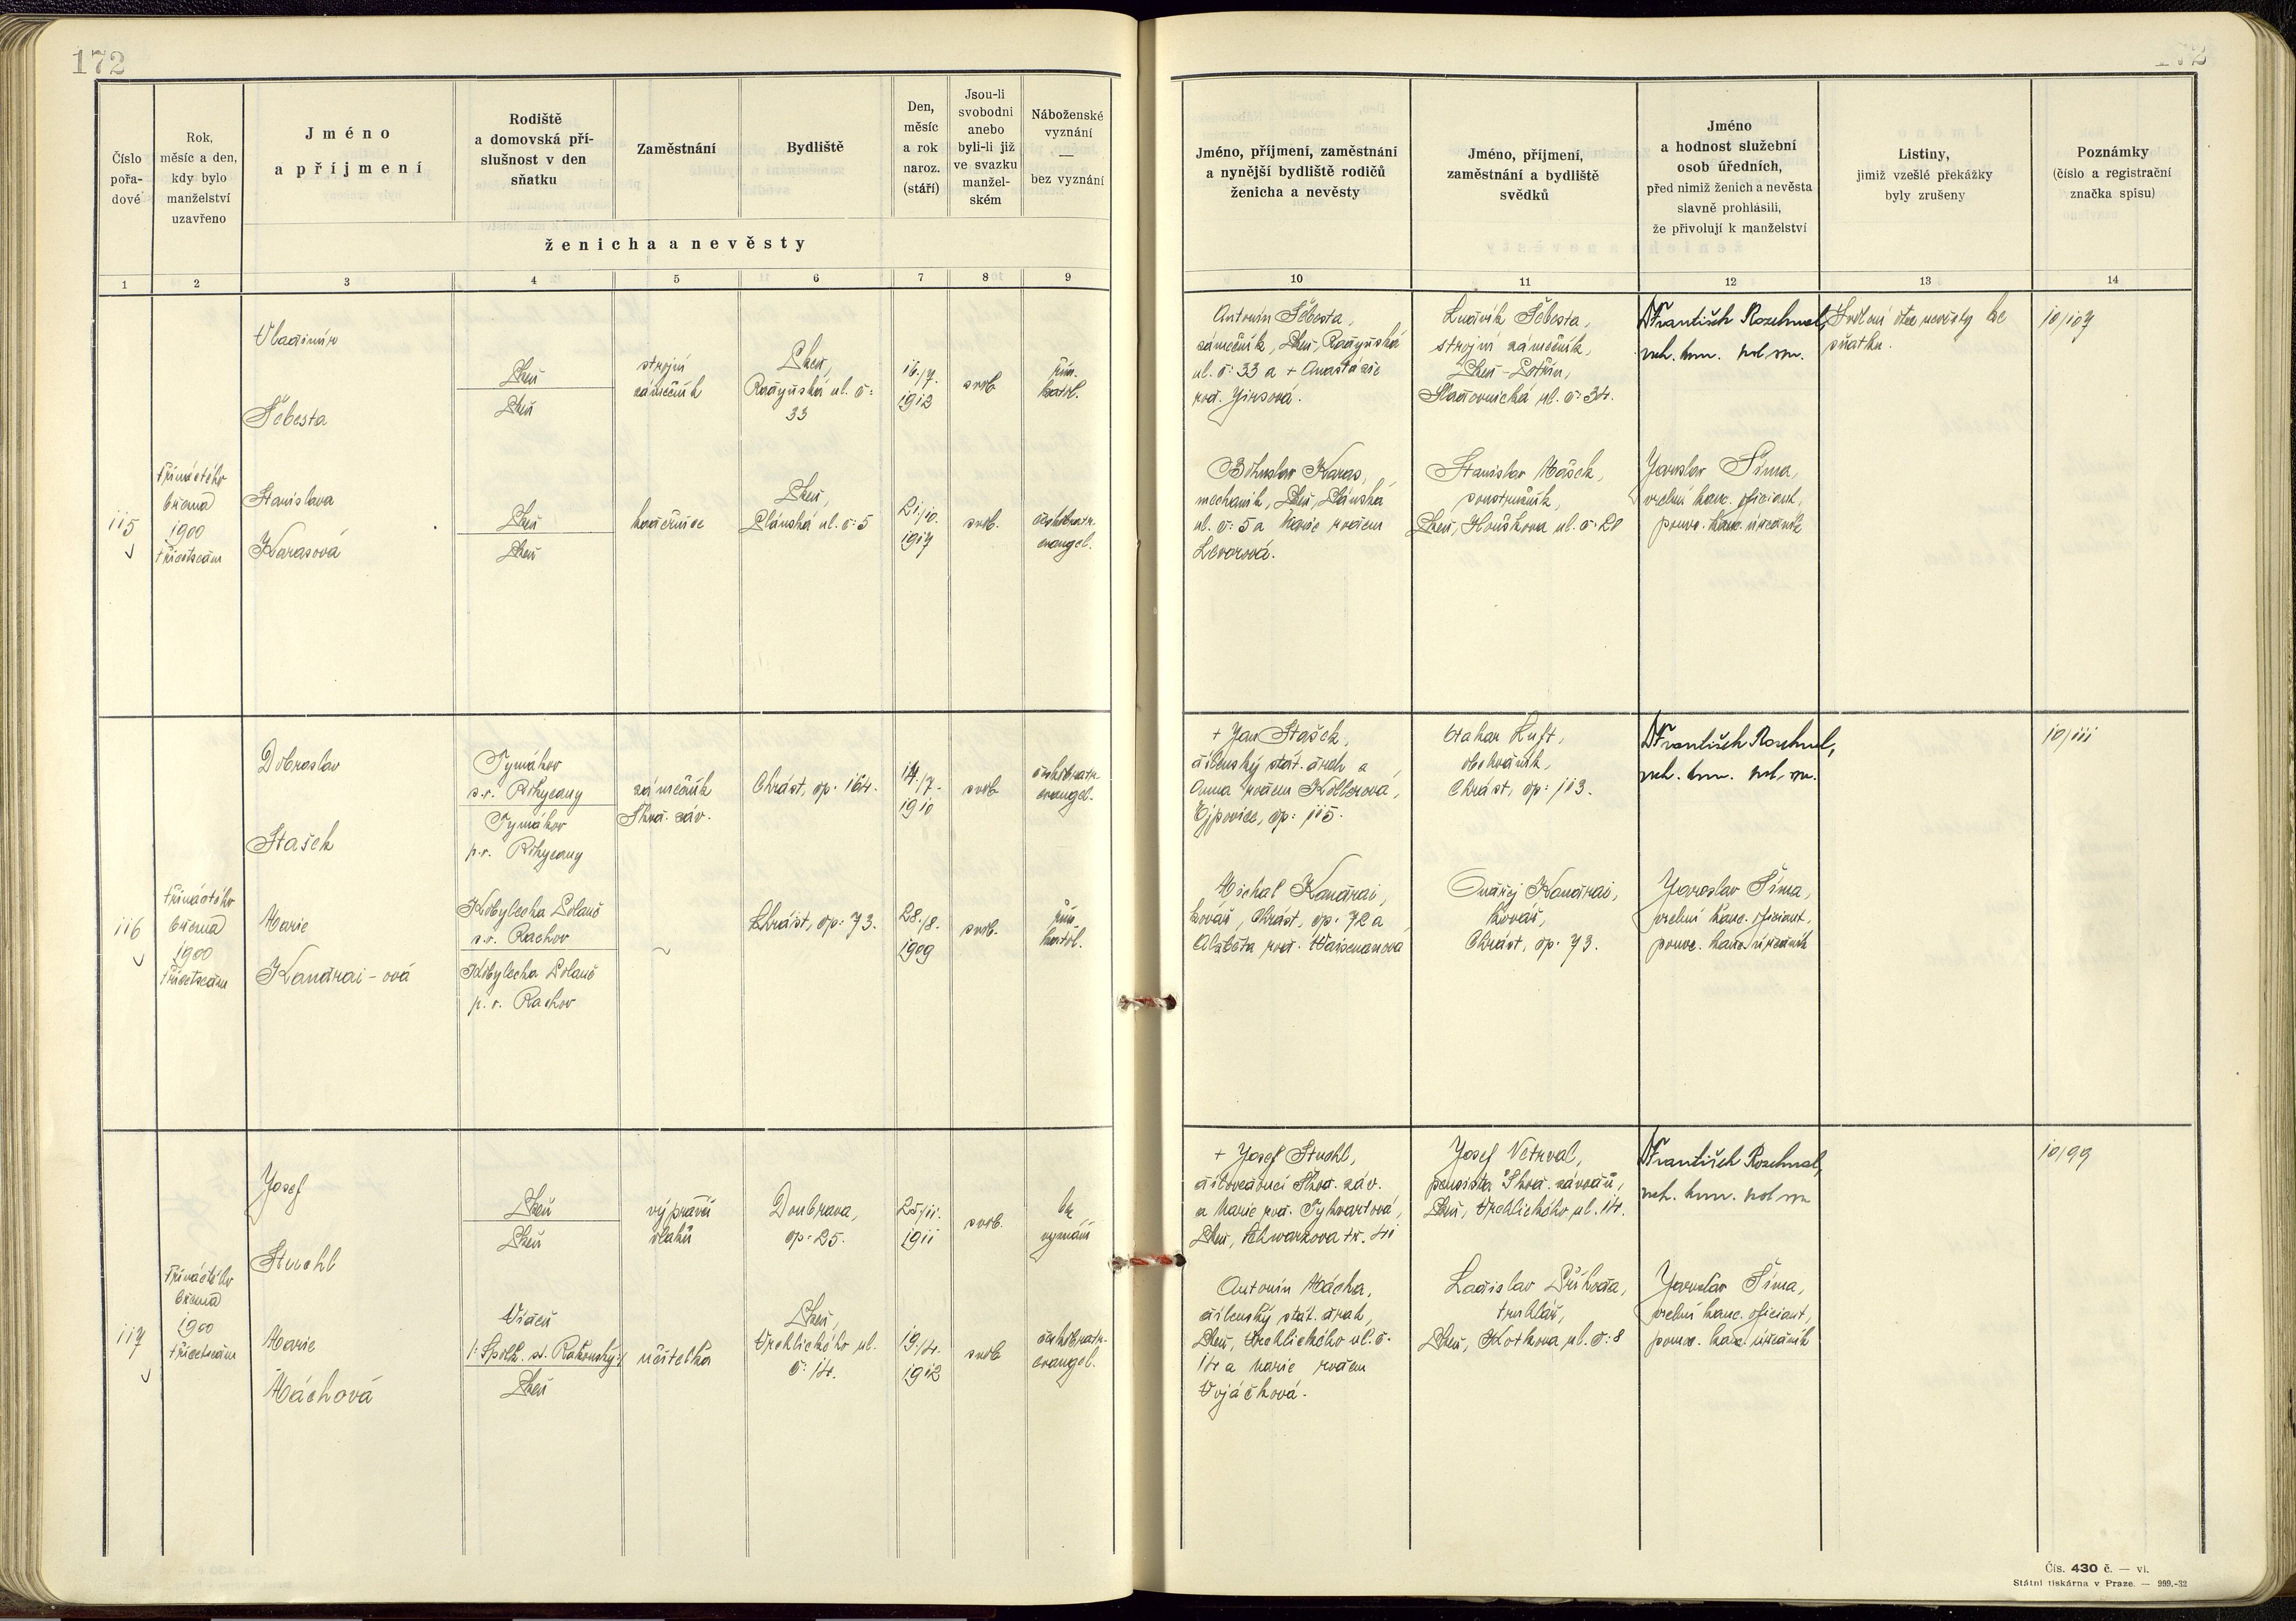 172
172
Číslo
pořa-
dové
Rok,
měsíc a den,
kdy bylo
manželství
uzavřeno
Jméno
a příjmení
Rodiště
a domovská pří-
slušnost v den
sňatku
Zaměstnání
Bydliště
Den,
měsíc
a rok
naroz.
(stáří)
Jsou-li
svobodni
anebo
byli-li již
ve svazku
manžel-
ském
Náboženské
vyznání
—
bez vyznání
ženicha a nevěsty
Jméno, příjmení, zaměstnání
a nynější bydliště rodičů
ženicha a nevěsty
Jméno, příjmení,
zaměstnání a bydliště
svědků
Jméno
a hodnost služební
osob úředních,
před nimiž ženich a nevěsta
slavně prohlásili,
že přivolují k manželství
Listiny,
jimiž vzešlé překážky
byly zrušeny
Poznámky
(číslo a registrační
značka spisu)
1 2 3 4 5 6 7 8 9 10 11 12 13 14
115
třináctého
března
1900
třicetsedm
Vladimír
Šebesta
Plzeň
Plzeň
strojní
zámečník
Plzeň,
Radyňská ul. č:
33
16./7.
1912
svob.
řím.
katol.
Stanislava
Karasová
Plzeň
Plzeň
kadeřnice
Plzeň,
Plánská ul. č: 5
21./10.
1917
svob.
českobratr.
evangel.
Antonín Šebesta,
zámečník, Plzeň, Radyňská
ul. č: 33 a + Anastázie
roz. Jirsová.
Bohuslav Karas,
mechanik, Plzeň, Plánská
ul. č: 5 a Marie rozen
Ludvík Šebesta,
strojní zámečník,
Plzeň-
ul. č: 34.
Stanislav Mašek,
soustružník,
Plzeň, Houškova ul. č: 20
Dr František Rozehnal,
Jaroslav Šíma,
vrchní kanc. oficiant,
Svolení otce nevěsty ke
sňatku.
10/107
116
třináctého
března
1900
třicetsedm
Dobroslav
Stašek
Tymákov
s.o. Rokycany
Tymákov
p.o. Rokycany
zámečník
Škod. záv.
Chrást, čp: 164.
14./7.
1910
svob.
českobratr.
evangel.
Marie
Kandrai-ová
Kobylecká Polana
s.o. Rachov
Kobylecká Polana
p.o. Rachov
Chrást, čp: 73.
28./8.
1909
svob.
řím.
katol.
+ Jan Stašek,
dílenský stát. drah a
Anna rozen Kollerová,
Ejpovice, čp: 115.
Michal Kandrai,
kovář, Chrást, čp: 72 a
Alžběta roz.
Otakar Kuft,
obchodník,
Chrást, čp: 113.
Ondřej Kandrai,
kovář,
Chrást, čp: 73.
Dr František Rozehnal,
Jaroslav Šíma,
vrchní kanc. oficiant,
10/111
117
třináctého
března
1900
třicetsedm
Josef
Stuchl
Plzeň
Plzeň
výpravčí
vlaků
Doubrava,
čp: 25.
25/11.
1911
svob.
bez
vyznání
Marie
Máchová
Plzeň
učitelka
Plzeň,
Vrchlického ul.
č: 14.
19./4.
1912
svob.
českobratr.
evangel.
+ Josef Stuchl,
dílovedoucí Škod. záv.
a Marie roz.
Plzeň, Schwarzova tř. 41
Antonín Mácha,
dílenský stát. drah,
Plzeň, Vrchlického ul. č:
14 a Marie rozen
Vojáčková.
Josef Vetrval,
pensista Škod. závodů,
Plzeň, Vrchlického ul. 14.
Ladislav Příhoda,
truhlář,
Plzeň, Kotkova ul. č: 8
Dr František Rozehnal,
Jaroslav Šíma,
vrchní kanc. oficiant,
10/99
Čís. 430 č. — vl.
Státní tiskárna v Praze. — 999.-32